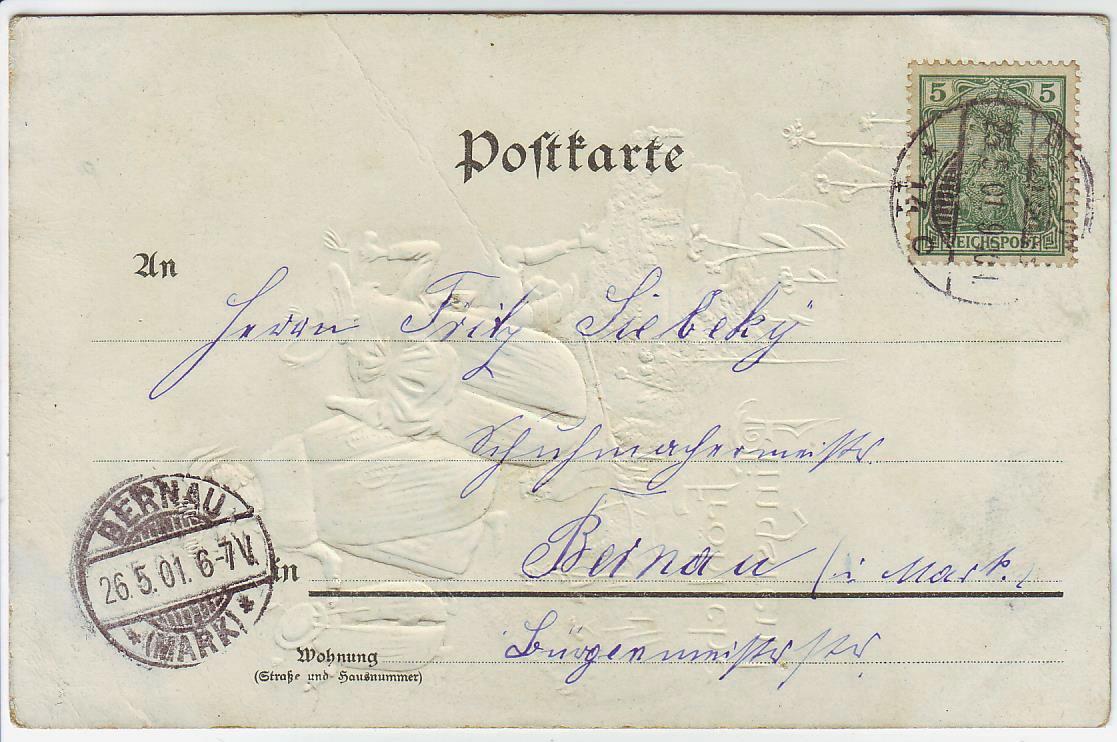 Postkarte
5 5
REICHSPOST
An
Herrn Fritz Siebeky
Schuhmachermeistr.
Bernau (i Mark.)
in
Bürgermeistrstr
Wohnung
(Straße und Hausnummer)
BERNAU
26.5.01. 6-7V.
* (MARK) *